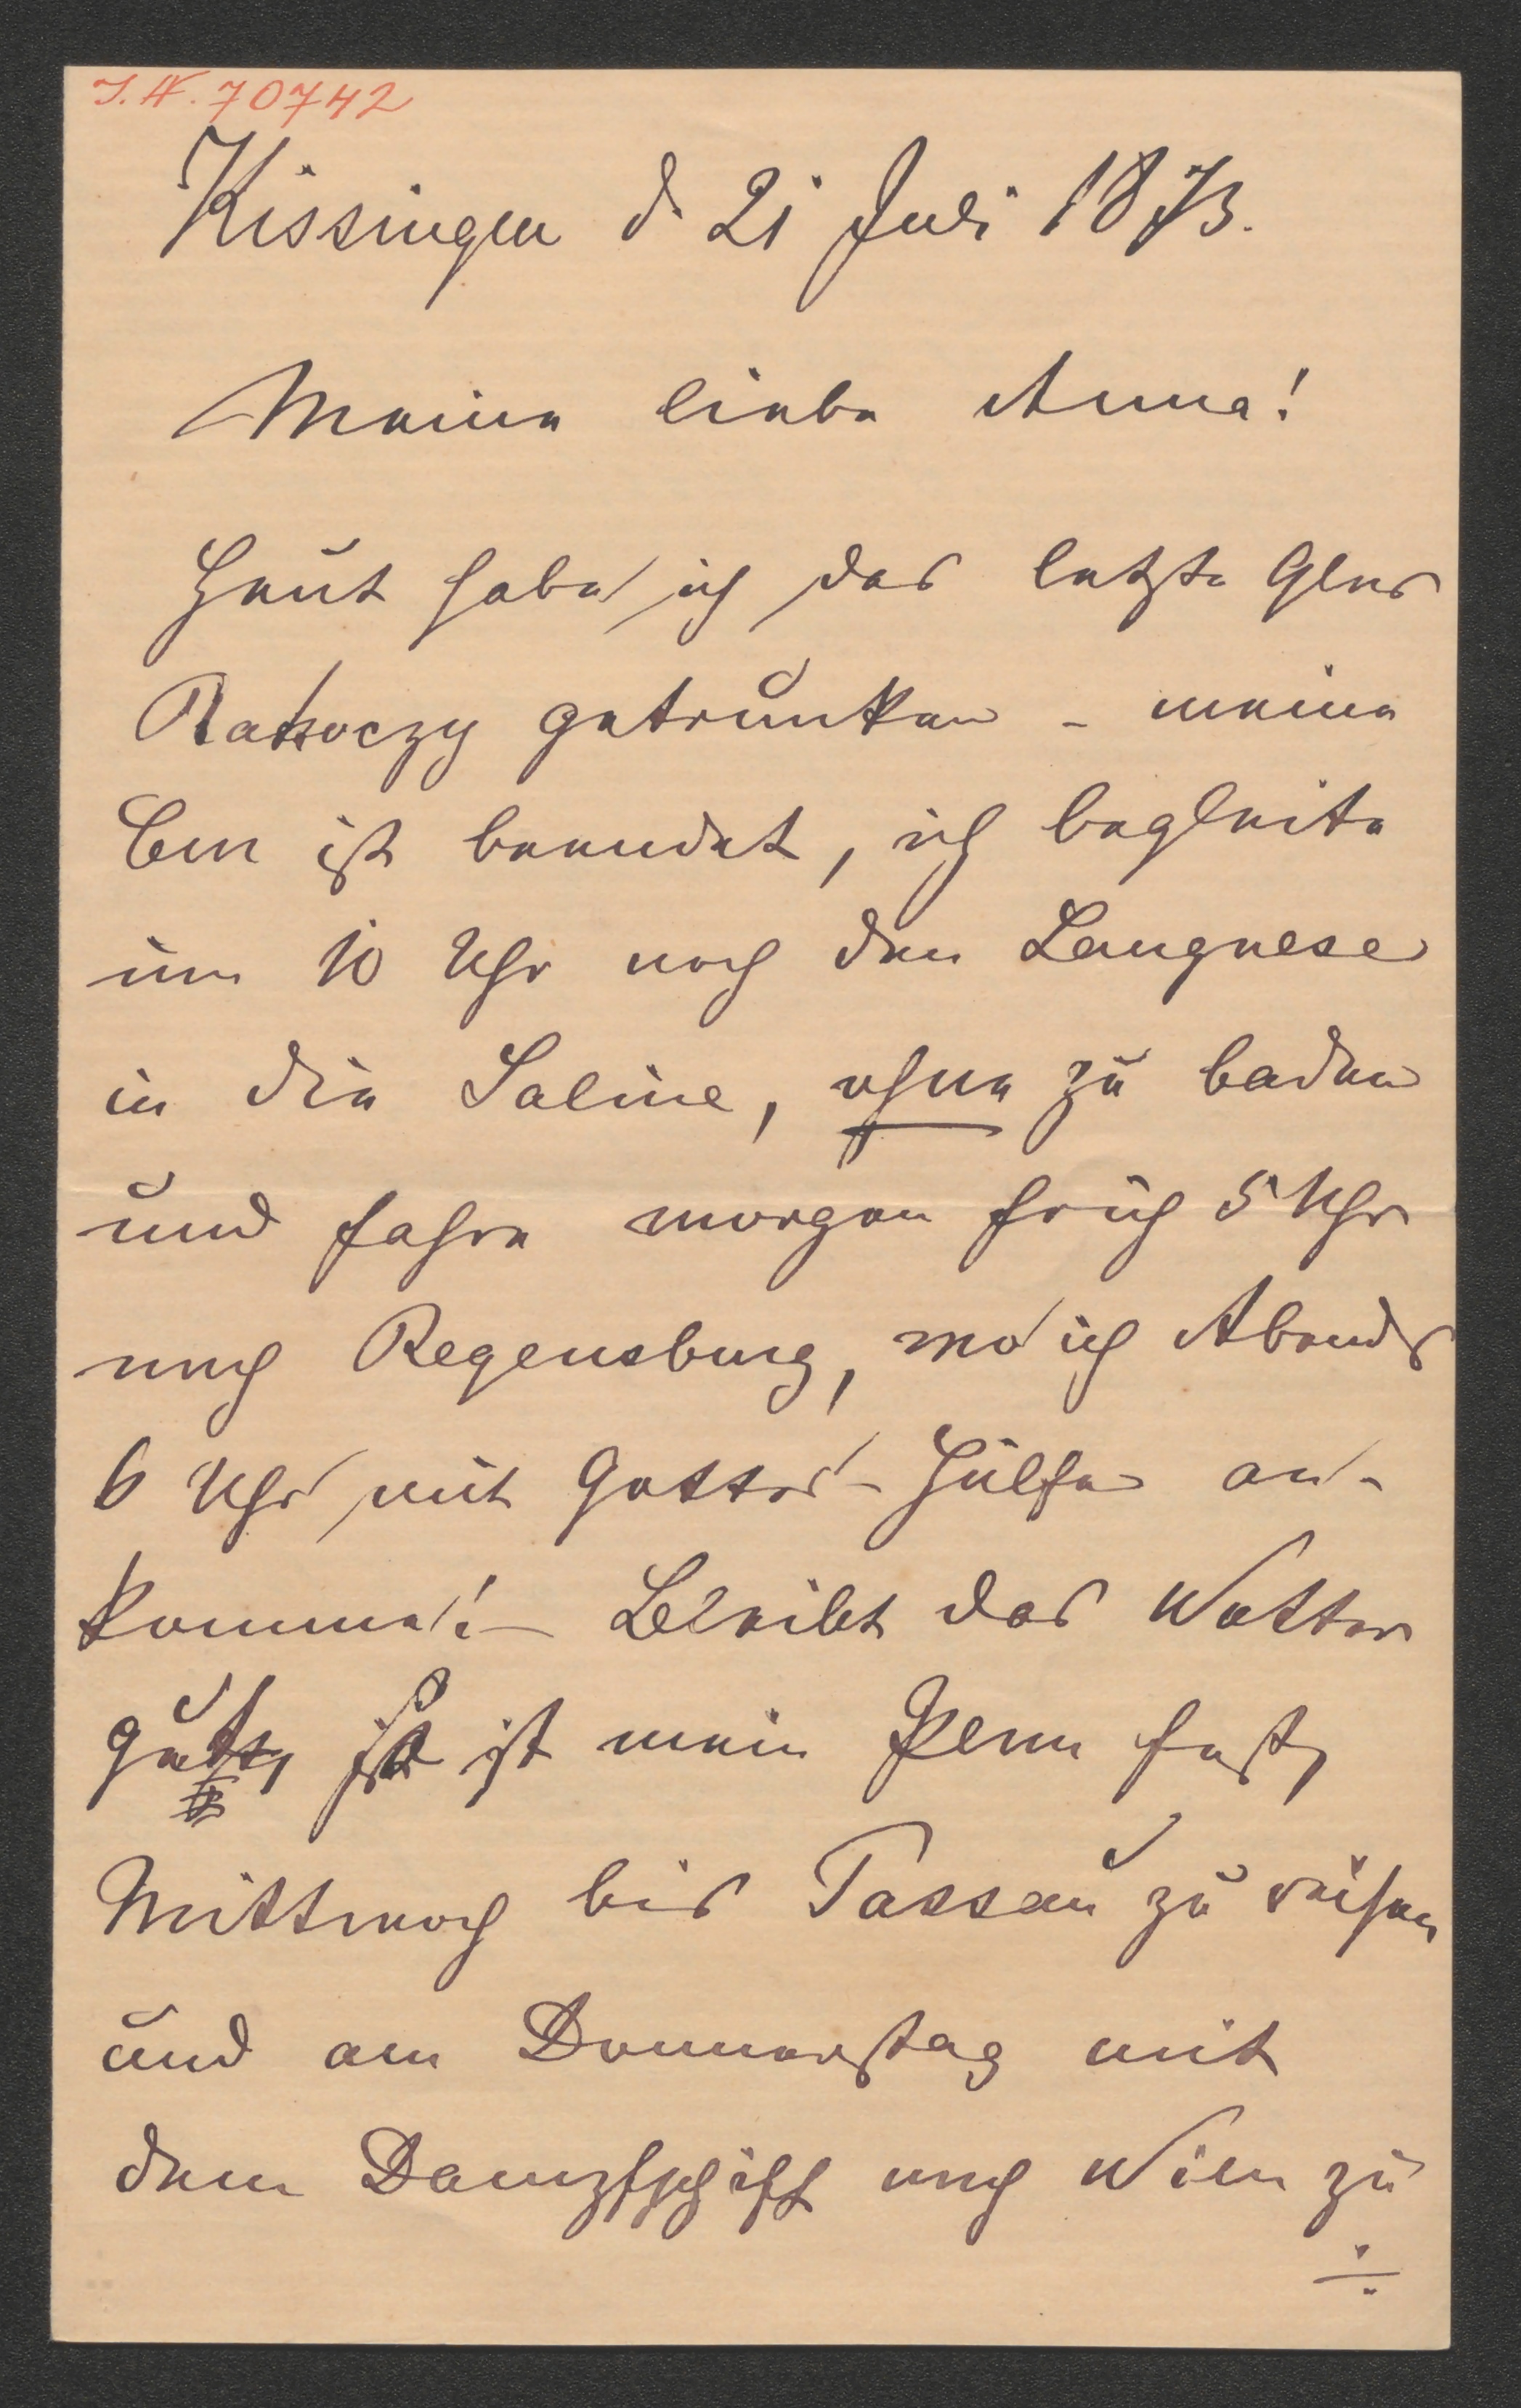 I.N. 70742
Kissingen d. 21 Juli 1873.
Meine liebe Anna!
Heut habe ich das letzte Glas
Rakoczy getrunken – meine
Cur ist beendet, ich begleite
um 10 Uhr noch den Langnese
in die Saline, ohne zu baden
und fahre morgen früh 5 Uhr
nach Regensburg, wo ich Abends
6 Uhr mit Gottes-Hülfe an-
komme! – Bleibt das Wetter
gut, so ist mein Plan fest,
Mittwoch bis Passau zu reisen
und am Donnerstag mit
dem Dampfschiff nach Wien zu
./.